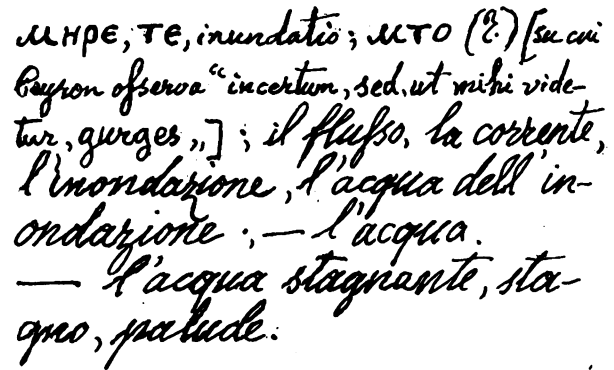 ⲙⲏⲣⲉ, ⲧⲉ, inundatio; ⲙⲧⲟ (ⲡ.) [su cui
Peyron osserva “incertum, sed, ut mihi vide-
tur, gurges„]; il flusso, la corrente,
l'inondazione, l'acqua dell'in-
ondazione; — l'acqua.
— l'acqua stagnante, sta-
gno, palude.